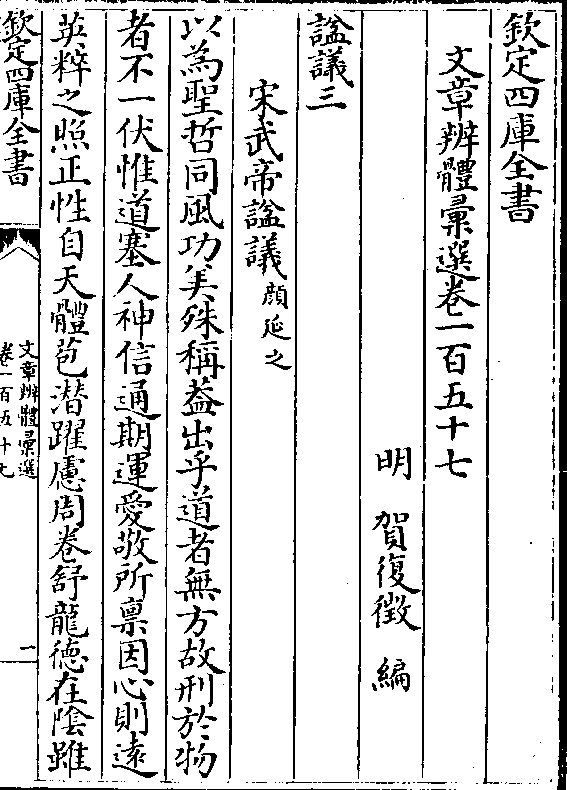 欽定四庫全書
文章辨體彙選卷一百五十七
明 賀復徵 編
諡議三
宋武帝諡議顔延之
以為聖哲同風功美殊稱葢出乎道者無方故刑於物
者不一伏惟道塞人神信通期運愛敬所禀因心則遠
英粹之照正性自天體苞潜躍慮周卷舒龍德在陰雖
欽定四庫全書
文章辨體彙選
卷一百五十七
一